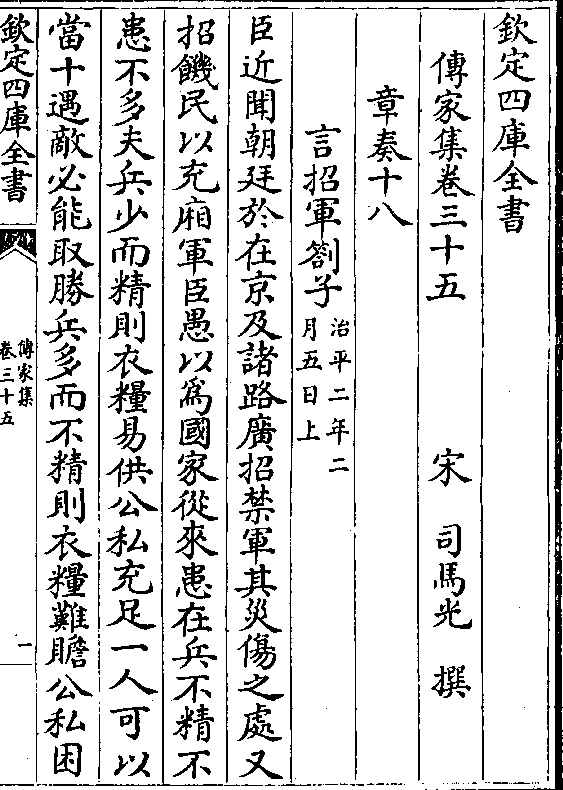 欽定四庫全書
傳家集卷三十五　宋　司馬光　撰
章奏十八
言招軍劄子治平二年二
月五日上
臣近聞朝廷於在京及諸路廣招禁軍其災傷之處又
招饑民以充廂軍臣愚以為國家從來患在兵不精不
患不多夫兵少而精則衣糧易供公私充足一人可以
當十遇敵必能取勝兵多而不精則衣糧難贍公私困
欽定四庫全書
傳家集
卷三十五
一